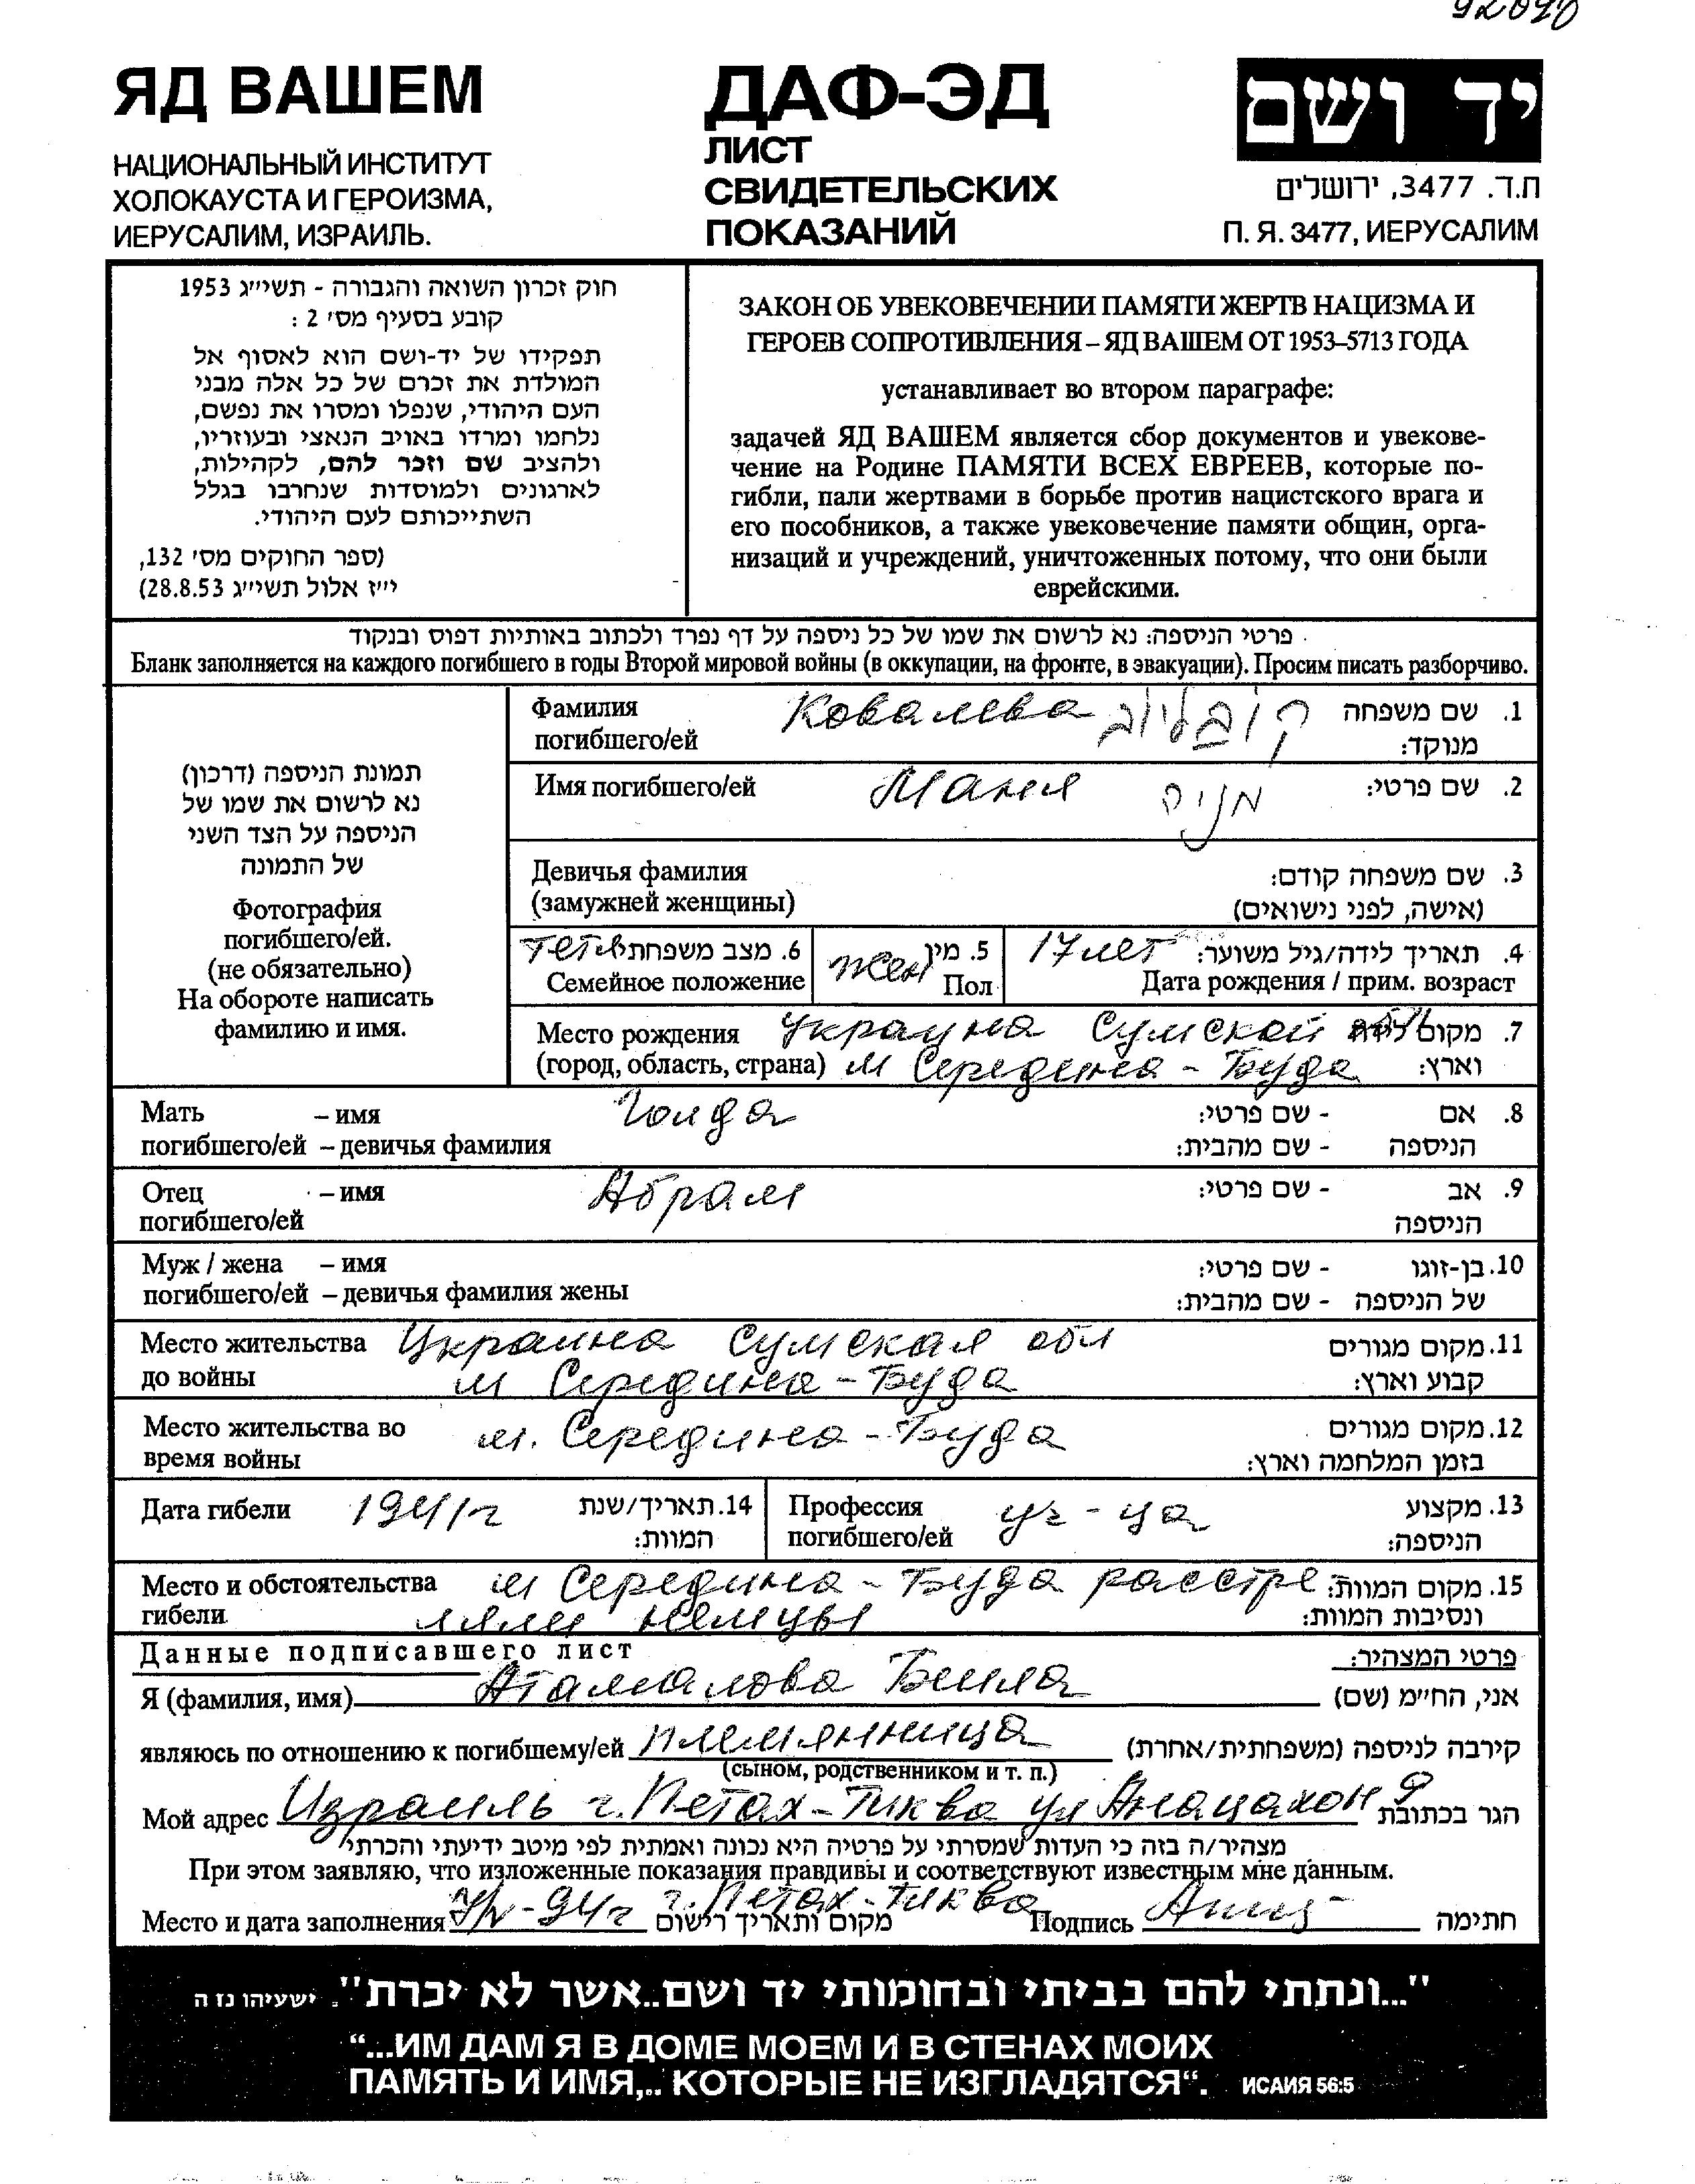 92070
ЯД ВАШЕМ
НАЦИОНАЛЬНЫЙ ИНСТИТУТ
ХОЛОКАУСТА И ГЕРОИЗМА,
ИЕРУСАЛИМ, ИЗРАИЛЬ.
ДАФ-ЭД
ЛИСТ
СВИДЕТЕЛЬСКИХ
ПОКАЗАНИЙ
יד ושם
ת.ד. 3477, ירושלים
П. Я. 3477, ИЕРУСАЛИМ
חוק זכרון השואה והגבורה - תשי״ג 1953
קובע בסעיף מס׳ 2 :
תפקידו של יד-ושם הוא לאסוף אל
המולדת את זכרם של כל אלה מבני
העם היהודי, שנפלו ומסרו את נפשם,
נלחמו ומרדו באויב הנאצי ובעוזריו,
ולהציב שם וזכר להם, לקהילות,
לארגונים ולמוסדות שנחרבו בגלל
השתייכותם לעם היהודי.
(ספר החוקים מס׳ 132,
י״ז אלול תשי״ג 28.8.53)
ЗАКОН ОБ УВЕКОВЕЧЕНИИ ПАМЯТИ ЖЕРТВ НАЦИЗМА И
ГЕРОЕВ СОПРОТИВЛЕНИЯ – ЯД ВАШЕМ ОТ 1953–5713 ГОДА
устанавливает во втором параграфе:
задачей ЯД ВАШЕМ является сбор документов и увекове-
чение на Родине ПАМЯТИ ВСЕХ ЕВРЕЕВ, которые по-
гибли, пали жертвами в борьбе против нацистского врага и
его пособников, а также увековечение памяти общин, орга-
низаций и учреждений, уничтоженных потому, что они были
еврейскими.
פרטי הניספה: נא לרשום את שמו של כל ניספה על דף נפרד ולכתוב באותיות דפוס ובנקוד
Бланк заполняется на каждого погибшего в годы Второй мировой войны (в оккупации, на фронте, в эвакуации). Просим писать разборчиво.
תמונת הניספה (דרכון)
נא לרשום את שמו של
הניספה על הצד השני
של התמונה
Фотография
погибшего/ей.
(не обязательно)
На обороте написать
фамилию и имя.
Фамилия Ковалева קובליוב 1. שם משפחה
погибшего/ей מנוקד:
Имя погибшего/ей Маня מניה 2. שם פרטי:
Девичья фамилия 3. שם משפחה קודם:
(замужней женщины) (אישה, לפני נישואים)
тетя 6. מצב משפחתי жен 5. מין 17 лет 4. תאריך לידה/גיל משוער:
Семейное положение Пол Дата рождения / прим. возраст
Место рождения Украина Сумской обл 7. מקום לידה
(город, область, страна) м Середина-Буда וארץ:
Мать – имя Голда - שם פרטי: 8. אם
погибшего/ей – девичья фамилия - שם מהבית: הניספה
Отец – имя Абрам - שם פרטי: 9. אב
погибшего/ей הניספה
Муж / жена – имя - שם פרטי: 10. בן-זוגו
погибшего/ей – девичья фамилия жены - שם מהבית: של הניספה
Место жительства Украина Сумская обл 11. מקום מגורים
до войны м Середина-Буда קבוע וארץ:
Место жительства во м. Середина-Буда 12. מקום מגורים
время войны בזמן המלחמה וארץ:
Дата гибели 1941г 14. תאריך/שנת המוות: Профессия погибшего/ей уч-ца 13. מקצוע הניספה:
Место и обстоятельства м Середина-Буда расстре 15. מקום המוות:
гибели ляли немцы ונסיבות המוות:
Данные подписавшего лист פרטי המצהיר:
Я (фамилия, имя) Атаманова Белла אני, החי״מ (שם)
являюсь по отношению к погибшему/ей племянница קירבה לניספה (משפחתית/אחרת)
(сыном, родственником и т. п.)
Мой адрес Израиль г. Петах-Тиква ул 9 הגר בכתובת
מצהיר/ה בזה כי העדות שמסרתי על פרטיה היא נכונה ואמתית לפי מיטב ידיעתי והכרתי
При этом заявляю, что изложенные показания правдивы и соответствуют известным мне данным.
Место и дата заполнения 94г г. Петах-Тиква מקום ותאריך רישום Подпись חתימה
"...ונתתי להם בביתי ובחומותי יד ושם..אשר לא יכרת". ישעיהו נז ה
“...ИМ ДАМ Я В ДОМЕ МОЕМ И В СТЕНАХ МОИХ
ПАМЯТЬ И ИМЯ,.. КОТОРЫЕ НЕ ИЗГЛАДЯТСЯ“. ИСАИЯ 56:5